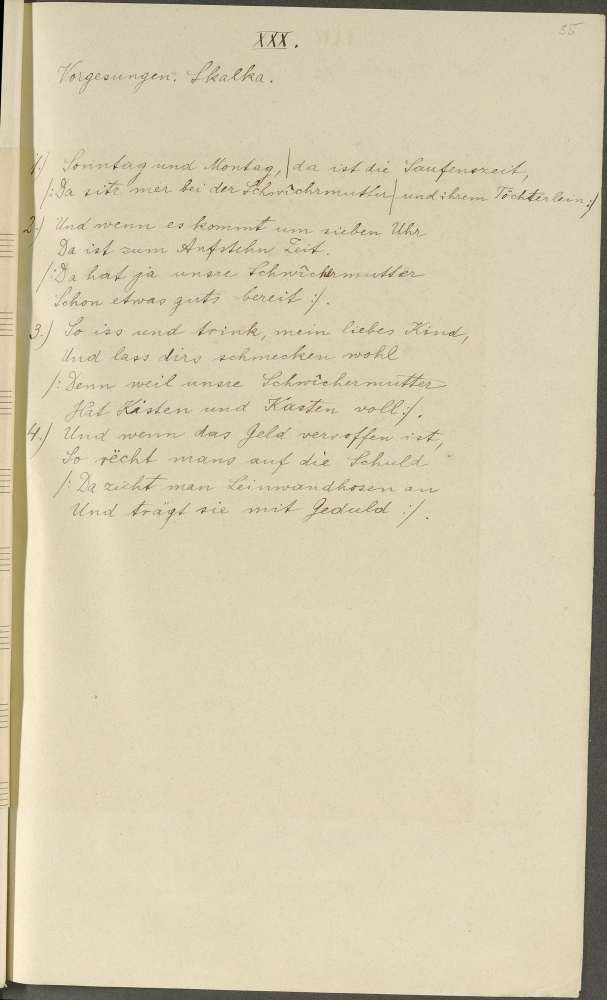 35
XXX.
Vorgesungen. Skalka.
1.) Sonntag und Montag, | da ist die Saufenszeit,
/: Da sitz mer bei der Schwîchrmutter | und ihrem Töchterlein :/
2.) Und wenn es kommt um sieben Uhr
Da ist zum Aufstehn Zeit.
/: Da hat ja unsre Schwîchrmutter
Schon etwas guts bereit :/.
3.) So iss und trink, mein liebes Kind,
Und lass dirs schmecken wohl
/: Denn weil unsre Schwîchermutter
Hat Kisten und Kasten voll :/.
4.) Und wenn das Geld versoffen ist,
So rëcht mans auf die Schuld
/: Da zieht man Leinwandhosen an
Und trägt sie mit Geduld :/.